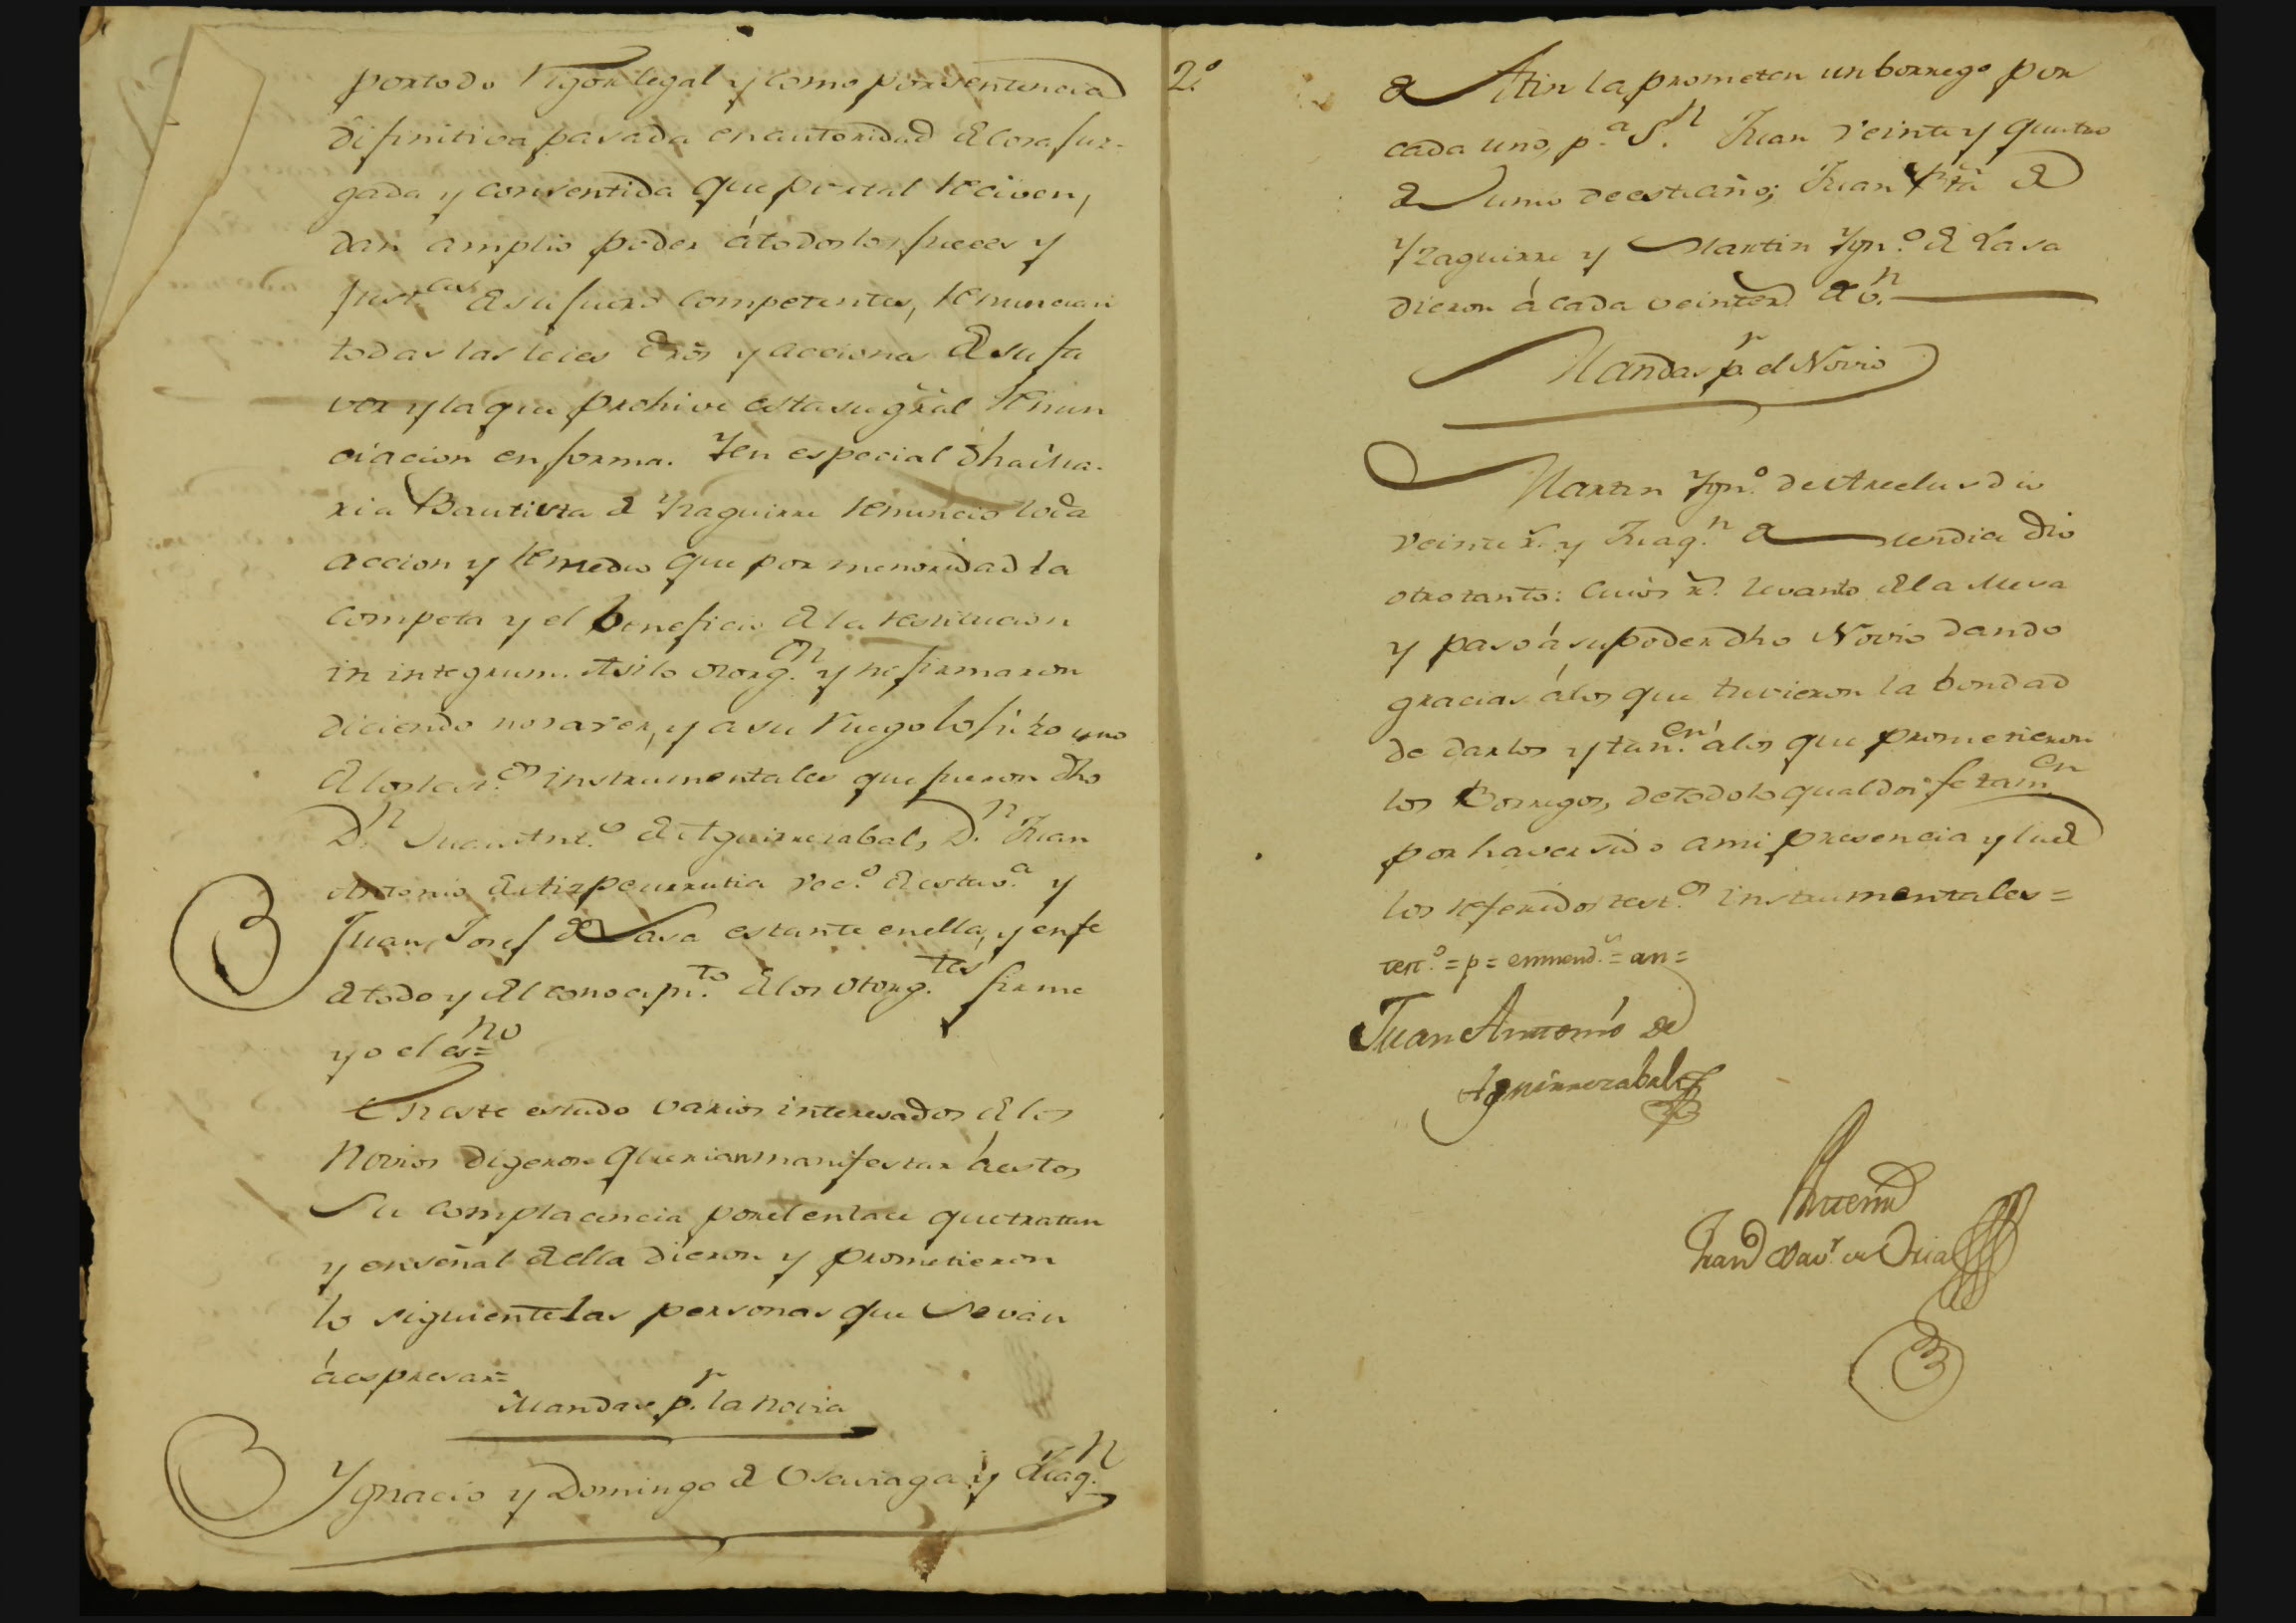 por todo rigor legal y como por sentencia
difinitiva pasada en autoridad de cosa juz-
gada y consentida que por tal reciven,
dan amplio poder á todos los jueces y
just.cias de su fuero competentes, renuncian
todas las leies dros y acciones de su fa
vor y la que prohive esta su gral renun
ciacion en forma. Y en especial dha Ma-
ria Bautista de Yzaguirre renuncio toda
accion y remedio que por menoridad la
competa y el beneficio de la restitucion
in integrum. Asi lo otorg.on y no firmaron
diciendo no saver, y a su ruego lo hizo uno
de los test.os instrumentales que fueron dho
D.n Juan Ant.o de Aguirrezabal, D.n Juan
Antonio de Azpeurrutia vec.o de esta v.a y
Juan Josef de Lasa estante en ella, y en fe
de todo y del conocim.to de los otorg.tes firme
yo el es.no
En este estado varios interesados de los
Novios digeron querian manifestar á estos
su complacencia por el enlace que tratan
y en señal de ella dieron y prometieron
lo siguiente las personas que se ván
á espresar=
Mandas p.r la novia
Ygnacio y Domingo de Usaviaga y Juaq.n
2.º
de Atin la prometen un borrego por
cada uno, p.a S.n Juan veinte y quatro
de Junio de este año; Juan Bta de
Yzaguirre y Martin Ygn.o de Lasa
dieron á cada veinte r.s de v.n
Mandas p.r el Novio
Martin Ygn.o de Arcelus dio
veinte r.s y Juaq.n de dio
otro tanto: cuios r.s levanto de la Mesa
y pasó á su poder dho Novio dando
gracias á los que tuvieron la bondad
de darlos y tan.en á los que prometieron
los Borregos, de todo lo qual doi fe tam.en
por haver sido a mi presencia y la de
los referidos test.os instrumentales=
test.o = p = emmend.o = an =
Juan Antonio de
Aguirrezabal
Ante mi